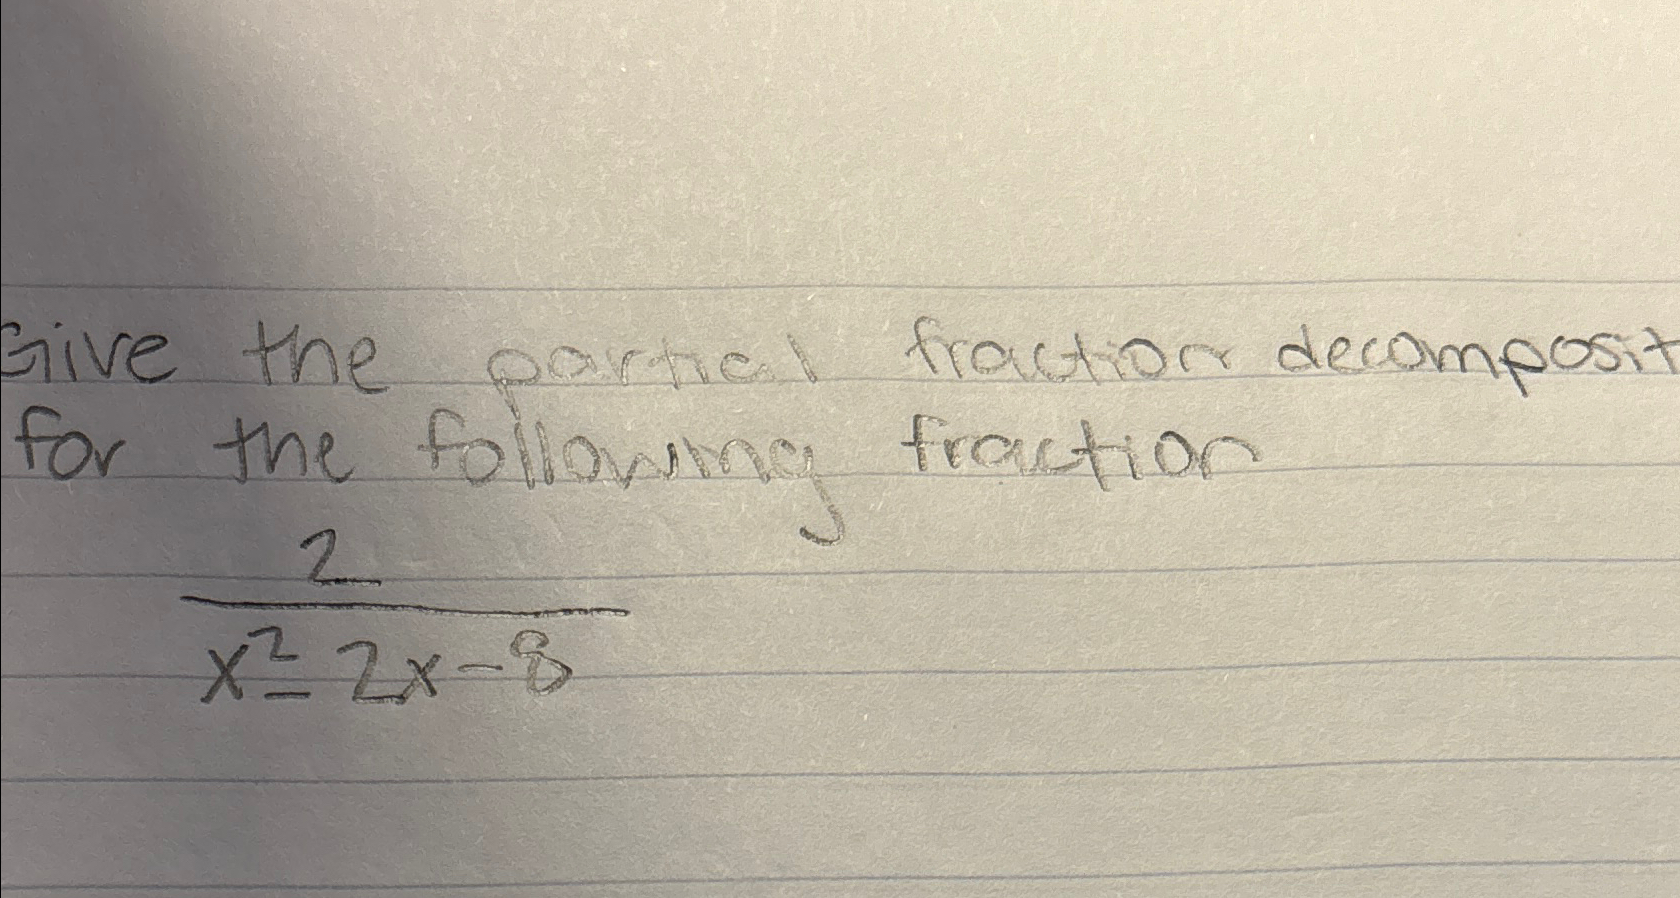 Give the partial fraction decomposit
for the following fraction
2
x² - 2x - 8